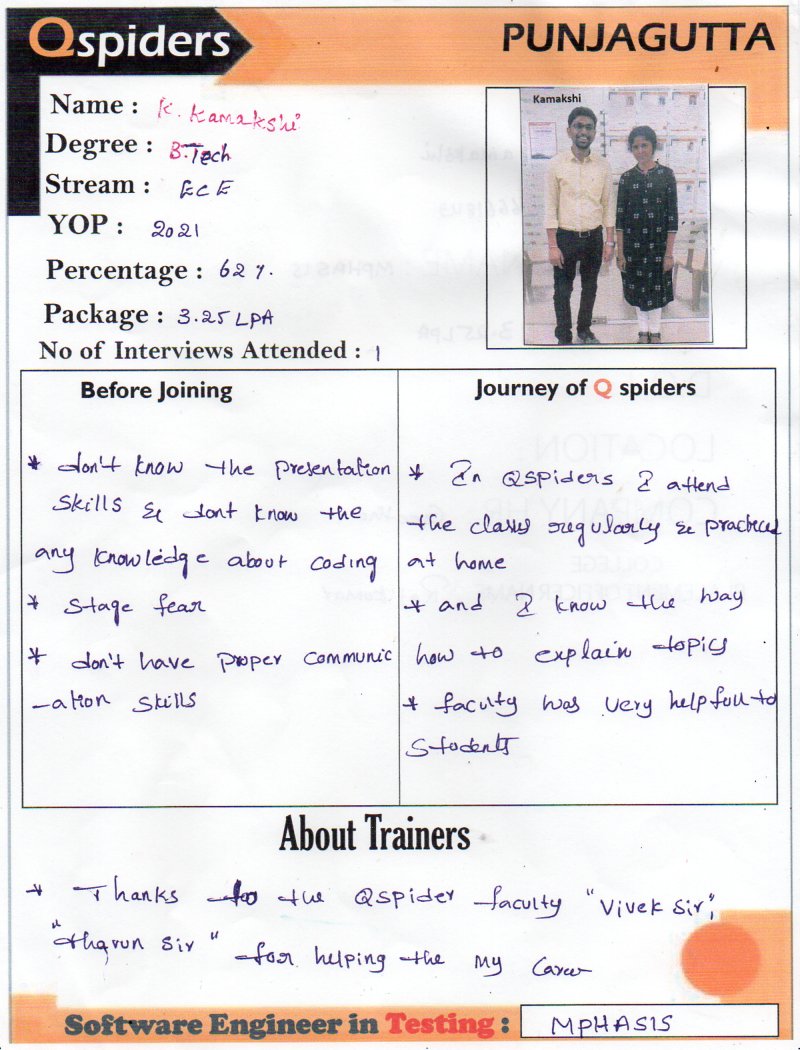 Qspiders
PUNJAGUTTA
Name : K. Kamakshi
Degree : B.Tech
Stream : ECE
YOP : 2021
Percentage : 62 %.
Package : 3.25 LPA
No of Interviews Attended : 1
Kamakshi
Before Joining
* don't know the presentation
skills & dont know the
any knowledge about coding
* stage fear
* don't have proper communic
-ation skills
Journey of Q spiders
* In QSPIDERS I attend
the classes regularly & practiced
at home
* and I know the way
how to explain topics
* faculty was very helpfull to
students
About Trainers
* Thanks to the QSPIDER faculty "Vivek Sir",
"tharun sir" for helping the my career
Software Engineer in Testing : MPHASIS